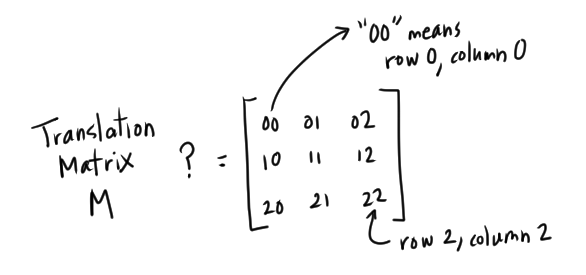 "00" means
row 0, column 0
Translation
Matrix
M
? =
00 01 02
10 11 12
20 21 22
row 2, column 2